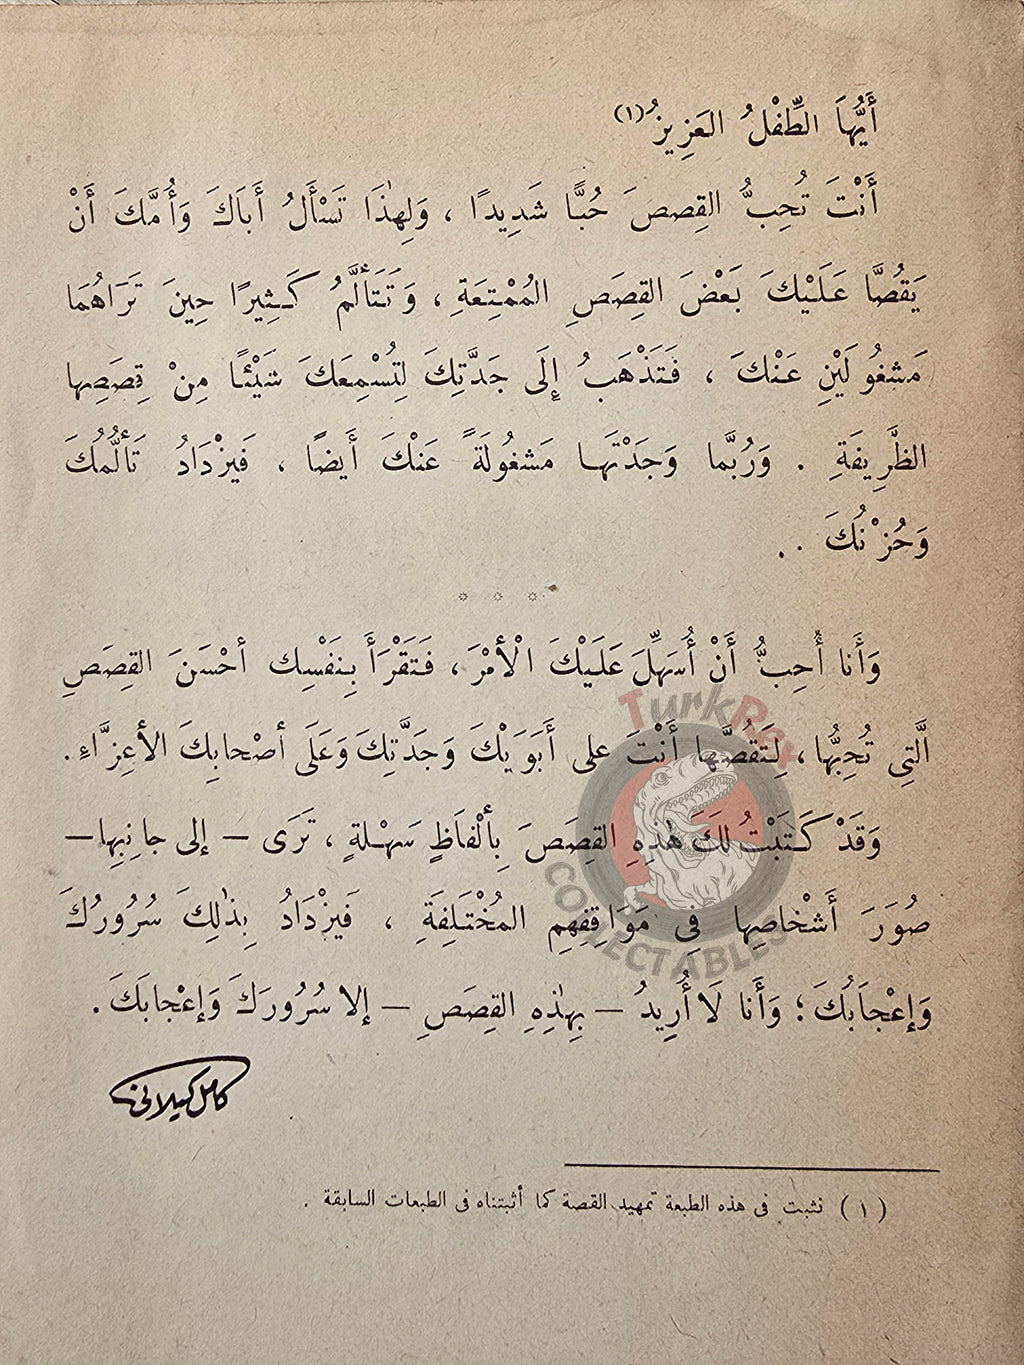 أَيُّهَا الطِّفْلُ العَزِيزُ (١)
أَنْتَ تُحِبُّ القِصصَ حُبًّا شَدِيدًا ، وَلِهٰذَا تَسْأَلُ أَبَاكَ وَأُمَّكَ أَنْ
يَقُصَّا عَلَيْكَ بَعْضَ القِصَصِ المُمْتِعَةِ ، وَتَتَأَلَّمُ كَثِيرًا حِينَ تَرَاهُمَا
مَشغُولَيْنِ عَنْكَ ، فَتَذْهَبُ إِلَى جَدَّتِكَ لِتُسْمِعَكَ شَيْئًا مِنْ قِصَصِها
الظَّرِيفَةِ . وَرُبَّما وَجَدْتَهـا مَشغُولَةً عَنْكَ أَيضًا ، فَيزْدَادُ تَأَلُّمُكَ
وَحُزْنُكَ ..
* * *
وَأَنا أُحِبُّ أَنْ أُسَهِّلَ عَلَيْكَ الْأَمْرَ ، فَتَقْرَأَ بِنَفْسِك أَحْسَنَ القِصَصِ
الَّتِى تُحِبُّها ، لِتَقُصَّها أَنْتَ على أَبَوَيْكَ وَجَدَّتِكَ وَعَلَى أصْحابِكَ الأعِزَّاءِ .
وَقَدْ كَتَبْتُ لَكَ هٰذِهِ القِصَصَ بِألْفَاظٍ سَهْلةٍ ، تَرَى — إلى جانِبِها —
صُوَرَ أَشْخاصِها فِى مَوَاقِفِهِم المُخْتَلِفَةِ ، فَيزْدَادُ بِذٰلِكَ سُرُورُكَ
وَإعْجَابُكَ ؛ وَأَنا لَا أُرِيدُ — بِهٰذِهِ القِصَصِ — إلا سُرُورَكَ وَإعْجابَكَ .
كامل كيلانى
(١) نثبت فى هذه الطبعة تمهيد القصة كما أثبتناه فى الطبعات السابقة .
TurkRex
COLLECTABLES